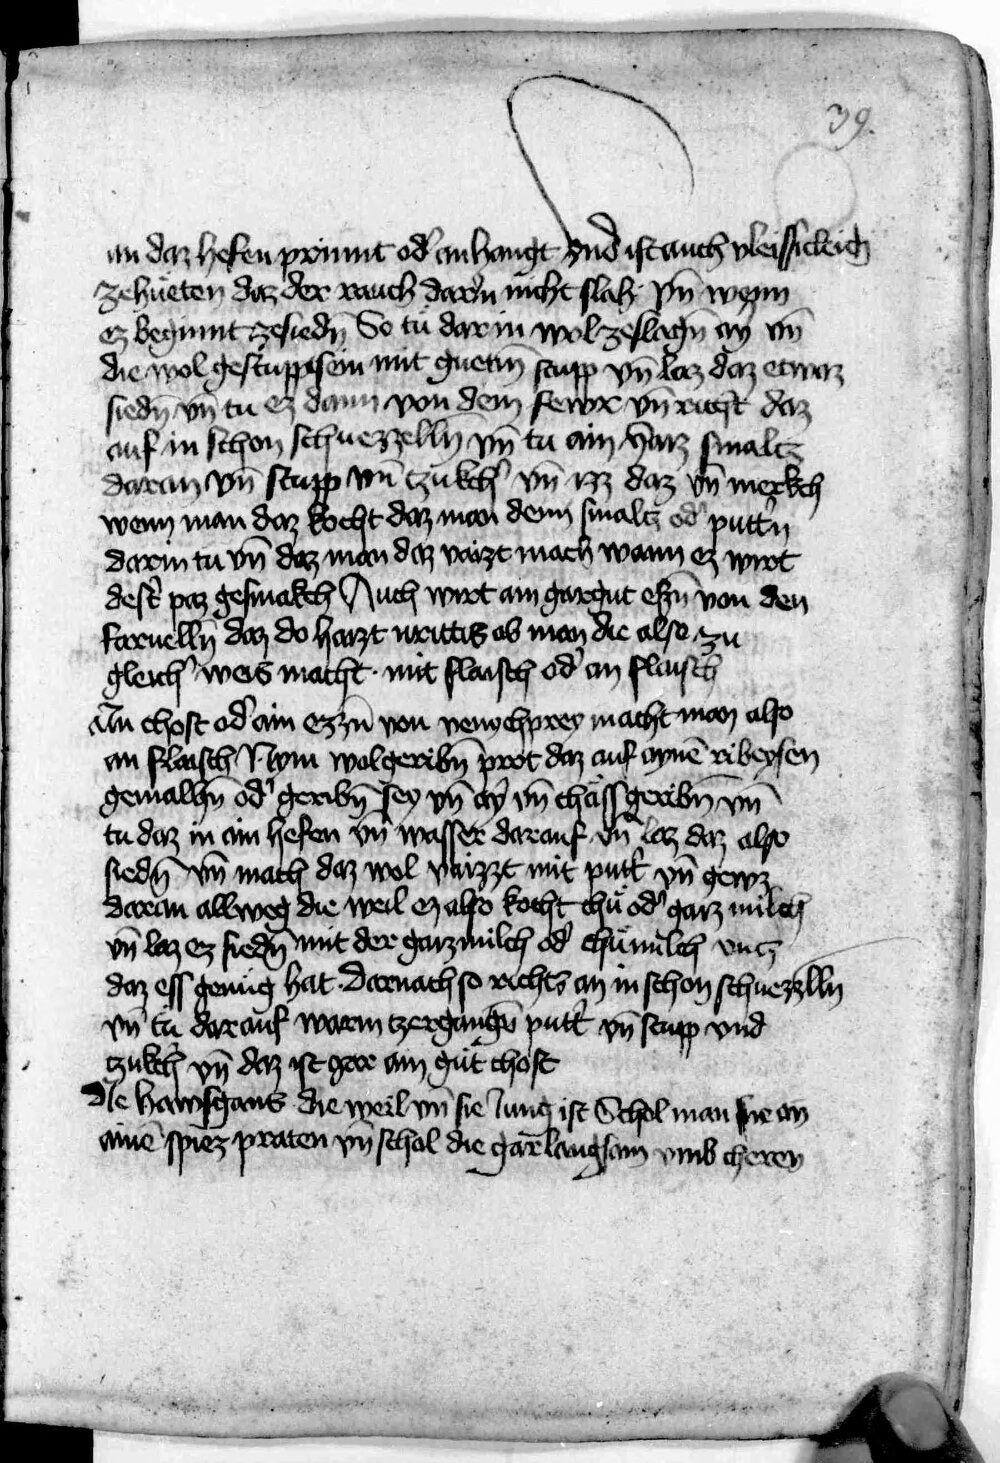 39.
an daz hefen prinnt od' anhangt vnd ist auch vleissichleich
ze hüeten daz der rauch dar in nicht slah. vn̄ wenn
ez beginnt ze siedn̄ So tü dar in wol zeslagn̄ ay vn̄
die wol gestuppt sein mit guetm̄ stupp vn̄ laz daz etwaz
siedn̄ vn̄ tu ez dann von dem fewr vn̄ richt daz
auf in schon schuezzelln̄ vn̄ tu ain smaltz
daran vn̄ stupp vn̄ tzukch' vn̄ izz daz vn̄ merkch
wenn man daz kocht daz man denn smaltz od' putt'n
darin tu vn̄ daz man daz vaizt mach wann ez wirt
dest' paz gesmakch Auch wirt ain gar gut eszn̄ von den
daz do haizt ob man die also zu
gleich' weis macht. mit flaisch od' an flaisch
Ain chost od' ain ezzn̄ von macht man also
an flaisch Nym wolgeribn̄ prot daz auf aynē ribeysen
gemalln̄ od' geribn̄ sey vn̄ ay vn̄ chäss geribn̄ vn̄
tu daz in ain hefen vn̄ wasser darauf vn̄ laz daz also
siedn̄ vn̄ mach daz wol vaizzt mit putt' vn̄ gewz
daran allweg die weil ez also kocht chü od' gaiz milch
vn̄ laz ez siedn̄ mit der gaizmilch od' chümilch vntz
daz ess genüg hat. Darnach so richts an in schon schuezzelln̄
vn̄ tü darauf warm tzergangn̄ putt' vn̄ stupp vnd
tzukch' vn̄ daz ist gar ain güt chost
Die hawsgans die weil vn̄ sie Jung ist Schol man sie an
ainē spiez praten vn̄ schol die gar langsam vmb cheren